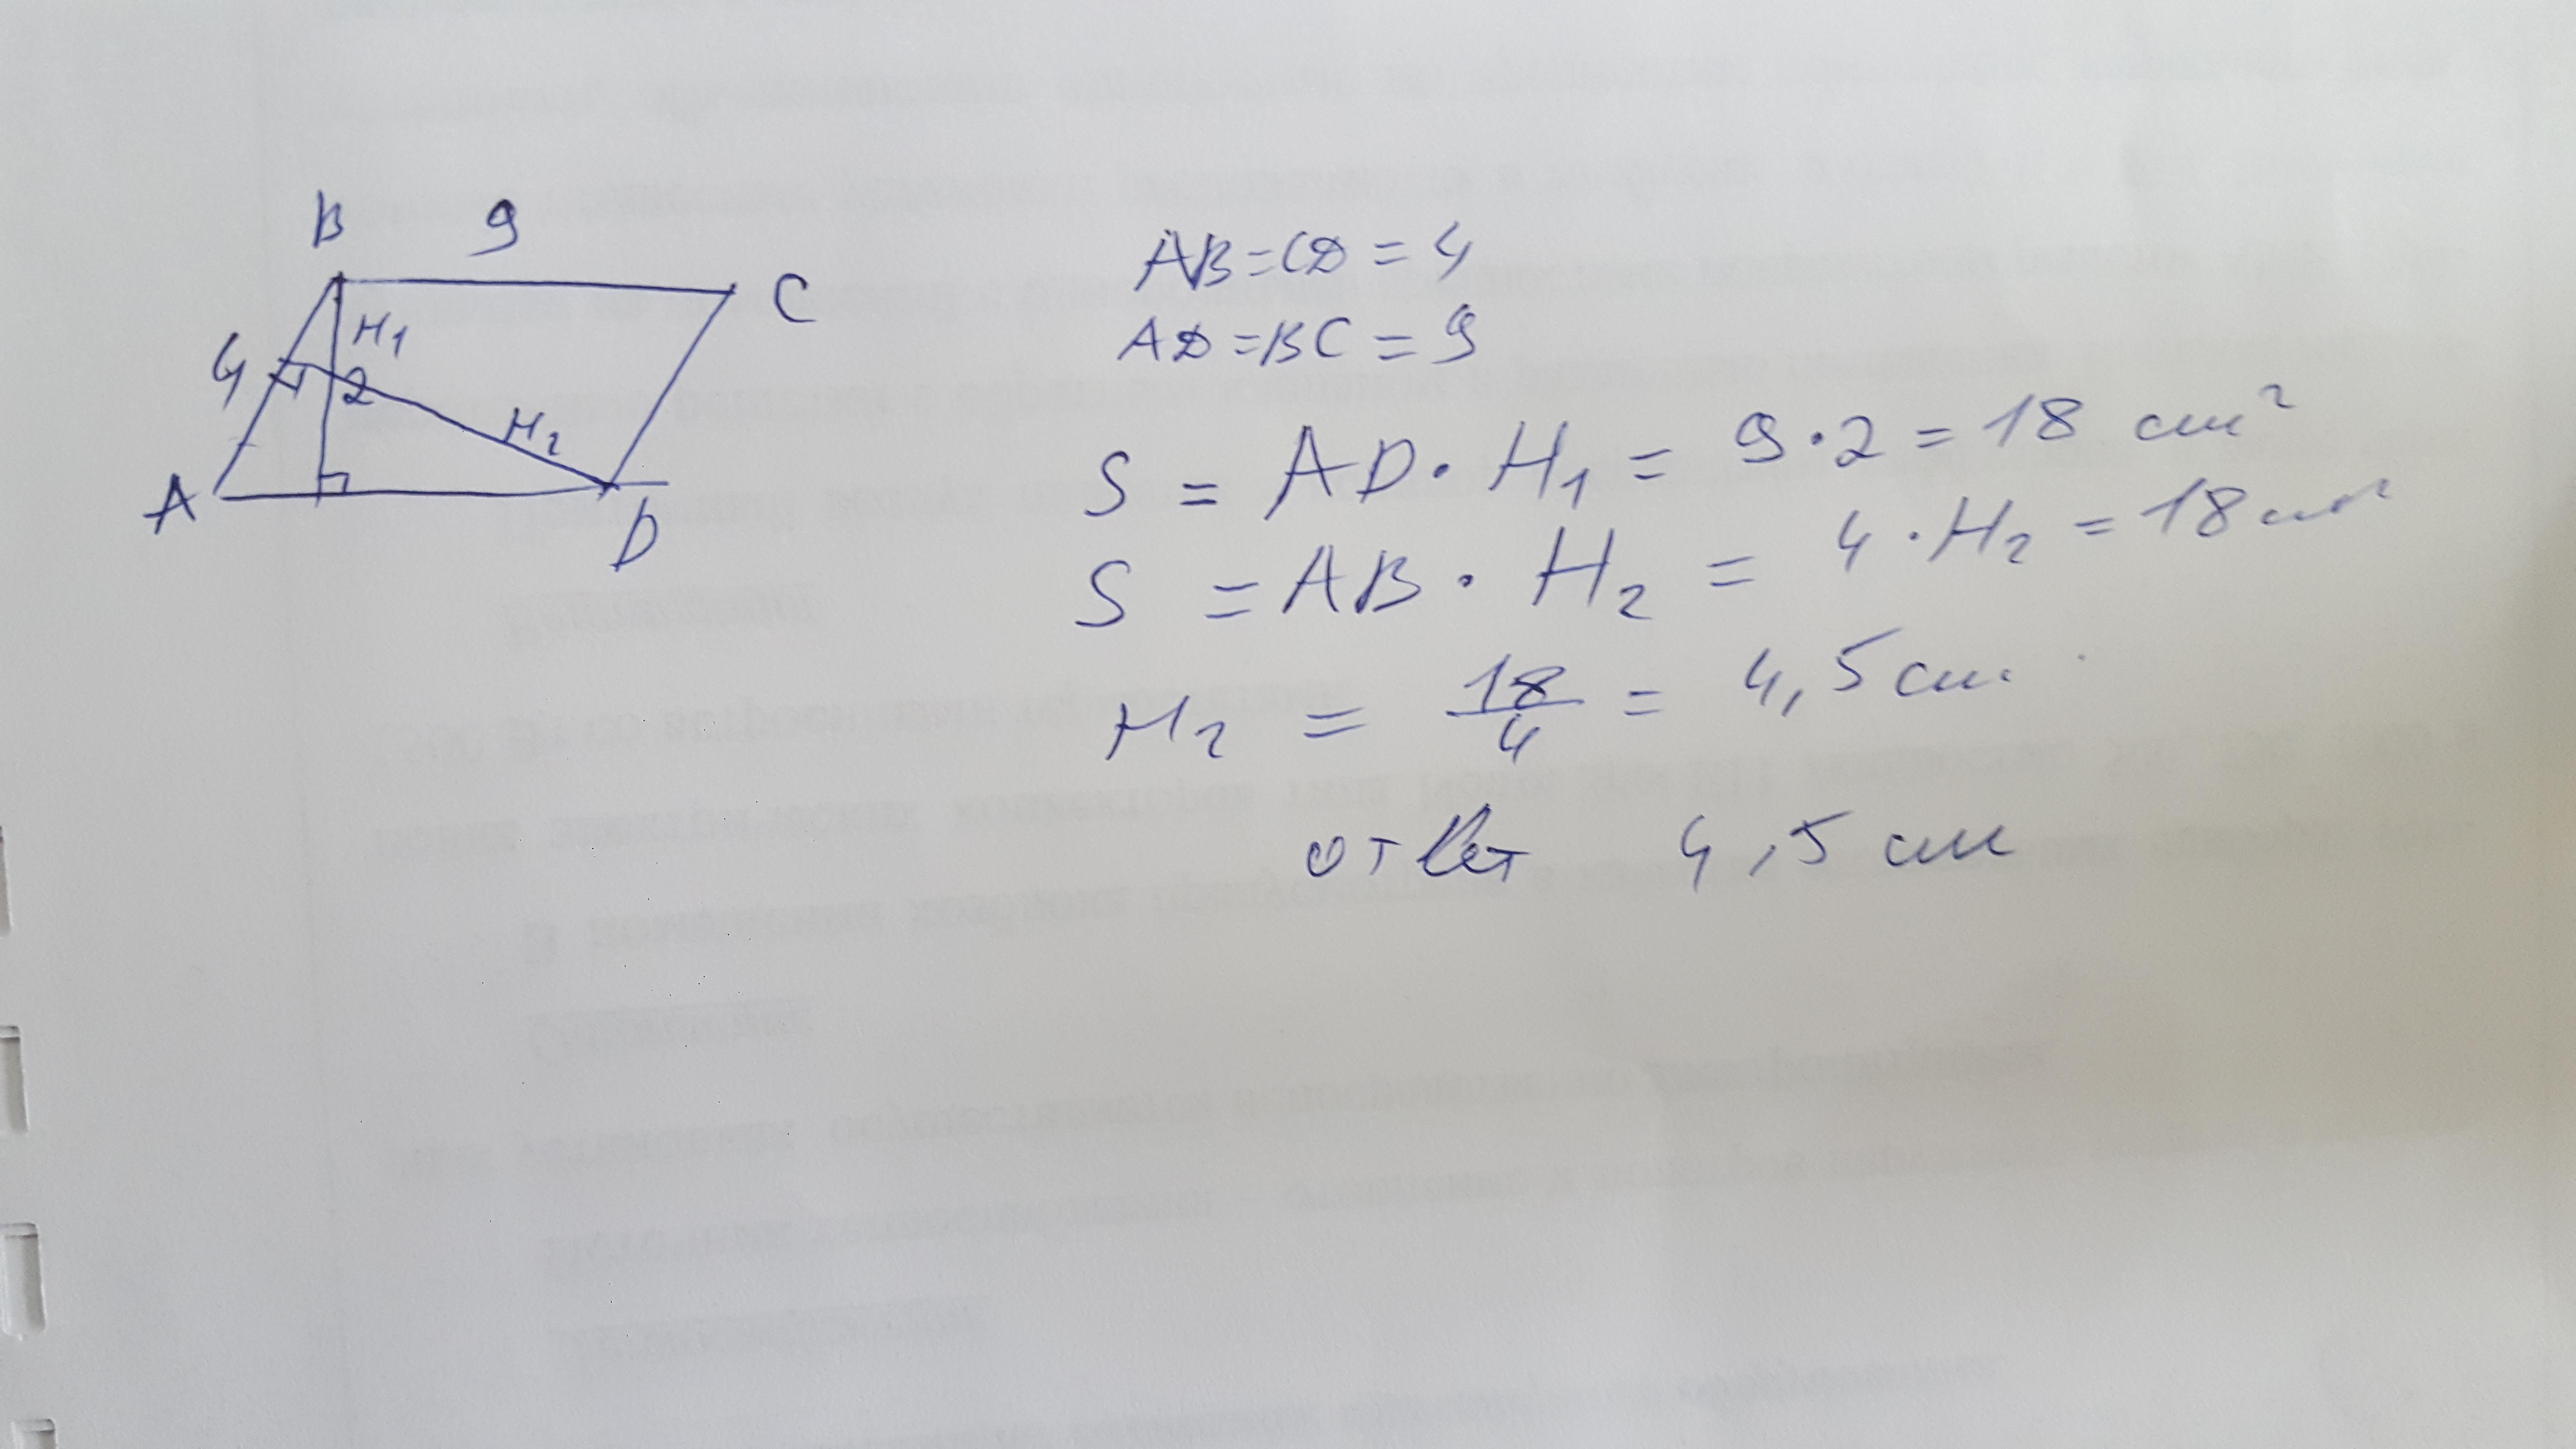 B 9
C
4 H₁
2
H₂
A
D
AB=CD = 4
AD=BC = 9
S = AD · H₁ = 9·2 = 18 см²
S = AB · H₂ = 4 · H₂ = 18 см²
H₂ = 18/4 = 4,5 см.
ответ 4,5 см